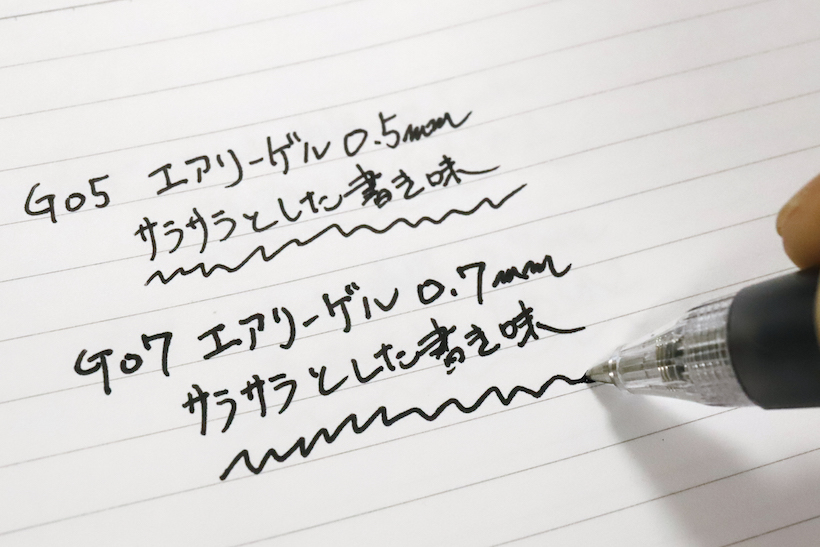 G05 エアリーゲル 0.5mm
サラサラとした書き味
G07 エアリーゲル 0.7mm
サラサラとした書き味